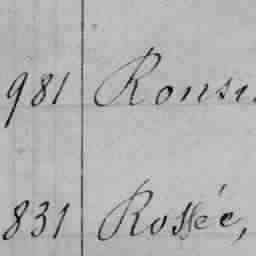 981 Ronsi
831 Rossée,